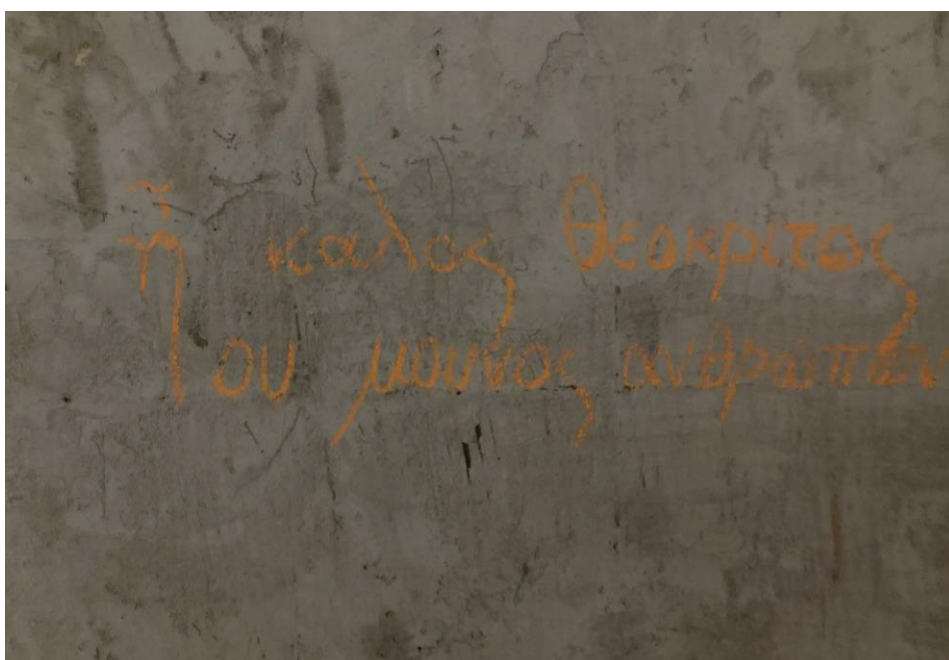 ἦ καλος θεοκριτος
ου μουνος ανθρωπων